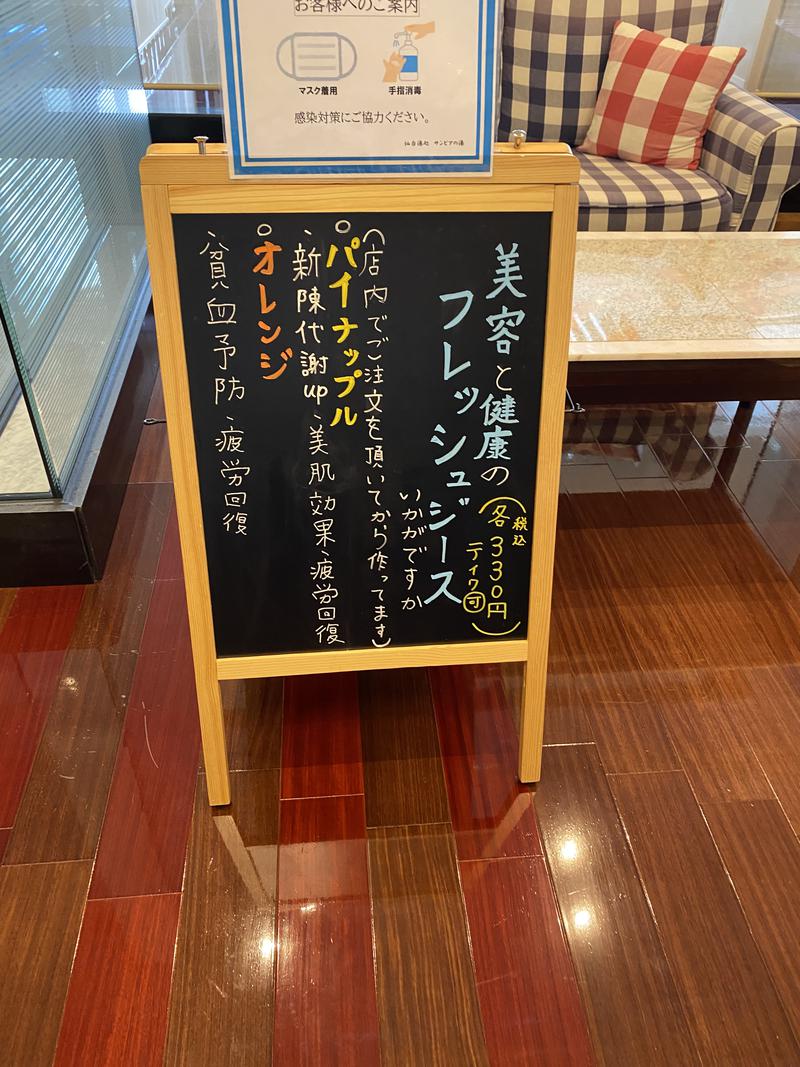 お客様へのご案内
マスク着用
手指消毒
感染対策にご協力ください。
仙台湯処 サンピアの湯
美容と健康の
フレッシュジュース
(各330円
税込
テイク可)
いかがですか
(店内でご注文を頂いてから作ってます)
○パイナップル
・新陳代謝up・美肌効果・疲労回復
○オレンジ
・貧血予防・疲労回復